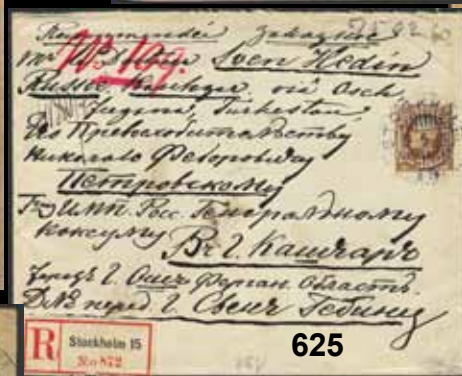 Recommandée Заказное
Mr Dr Sven Hedin
Russie Kashgar, viâ Osch
Turkestan
Его Превосходительству
Николаю Федоровичу
Петровскому
Гну Имп. Росс. Генеральному
Консулу
Въ г. Кашгаръ
черезъ г. Ошъ Ферган. Область.
Для перед. г. Свенъ Гедину
R Stockholm 15
No 872
625